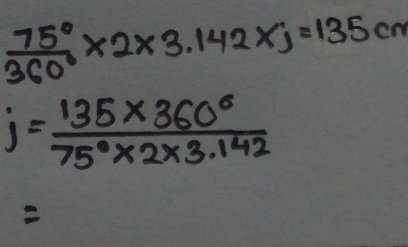 75°/360° × 2 × 3.142 × j = 135 cm
j = 135 × 360° / 75° × 2 × 3.142
=